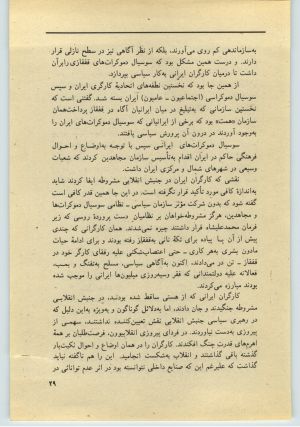 به‌سازماندهی کم روی می‌آورند، بلکه از نظر آگاهی نیز در سطح نازلی قرار
دارند. و درست همین مشکل بود که سوسیال دموکرات‌های قفقازی رابرآن
داشت تا درمیان کارگران ایرانی به‌کار سیاسی بپردازد.
از همین جا بود که نخستین نطفه‌های اتحادیهٔ کارگری ایران و سپس
سوسیال دموکراسی (اجتماعیون ـ عامیون) ایران بسته شد. گفتنی است که
نخستین سازمانی که به‌تبلیغ در میان ایرانیان آگاه در قفقاز پرداخت‌همان
سازمان «همت» بود که برخی از ایرانیانی که سوسیال دموکرات‌های ایران را
به‌وجود آوردند در درون آن پرورش سیاسی یافتند.
سوسیال دموکرات‌های ایرانی سپس با توجه به‌اوضاع و احوال
فرهنگی حاکم در ایران اقدام به‌تأسیس سازمان مجاهدین کردند که شعبات
وسیعی در شهرهای شمال و مرکزی ایران داشت.
نقشی که کارگران ایران در جنبش انقلابی مشروطه ایفا کردند شاید
به‌اندازهٔ کافی مورد تأکید قرار نگرفته است، در این جا همین قدر کافی است
گفته شود که بدون شرکت مؤثر سازمان سیاسی ـ نظامی سوسیال دموکرات‌ها
و مجاهدین، هرگز مشروطه‌خواهان بر نظامیان دست پروردهٔ روسی که زیر
فرمان محمدعلیشاه قرار داشتند چیره نمی‌شدند. همان کارگرانی که چندی
پیش از آن پا پیاده برای تکهٔ نانی به‌قفقاز رفته بودند و برای ادامهٔ حیات
مادون بشری به‌هر کاری ـ حتی اعتصاب‌شکنی علیه رفقای کارگر خود در
قفقاز ـ تن در می‌دادند، اکنون به‌آگاهی سیاسی، مسلح به‌تفنگ و بمب،
فعالانه علیه دولتمندانی که فقر وسیه‌روزی میلیون‌ها ایرانی را موجب شده
بودند مبارزه می‌کردند.
کارگران ایرانی که از هستی ساقط شده بودند، در جنبش انقلابی
مشروطه جنگیدند و جان دادند، اما به‌دلائل گوناگون و به‌ویژه به‌این دلیل که
در رهبری سیاسی جنبش انقلابی نقش تعیین‌کننده نداشتند، سهمی از
پیروزی به‌دست نیاوردند. در فردای پیروزی انقلابیون، فرصت‌طلبان بر همهٔ
اهرم‌های قدرت چنگ افکندند. کارگران را در همان اوضاع و احوال نکبت‌بار
گذشته باقی گذاشتند و انقلاب به‌شکست انجامید. این را هم ناگفته نباید
گذاشت که علیرغم این که صنایع داخلی نتوانسته بود در اثر عدم توانائی در
۲۹